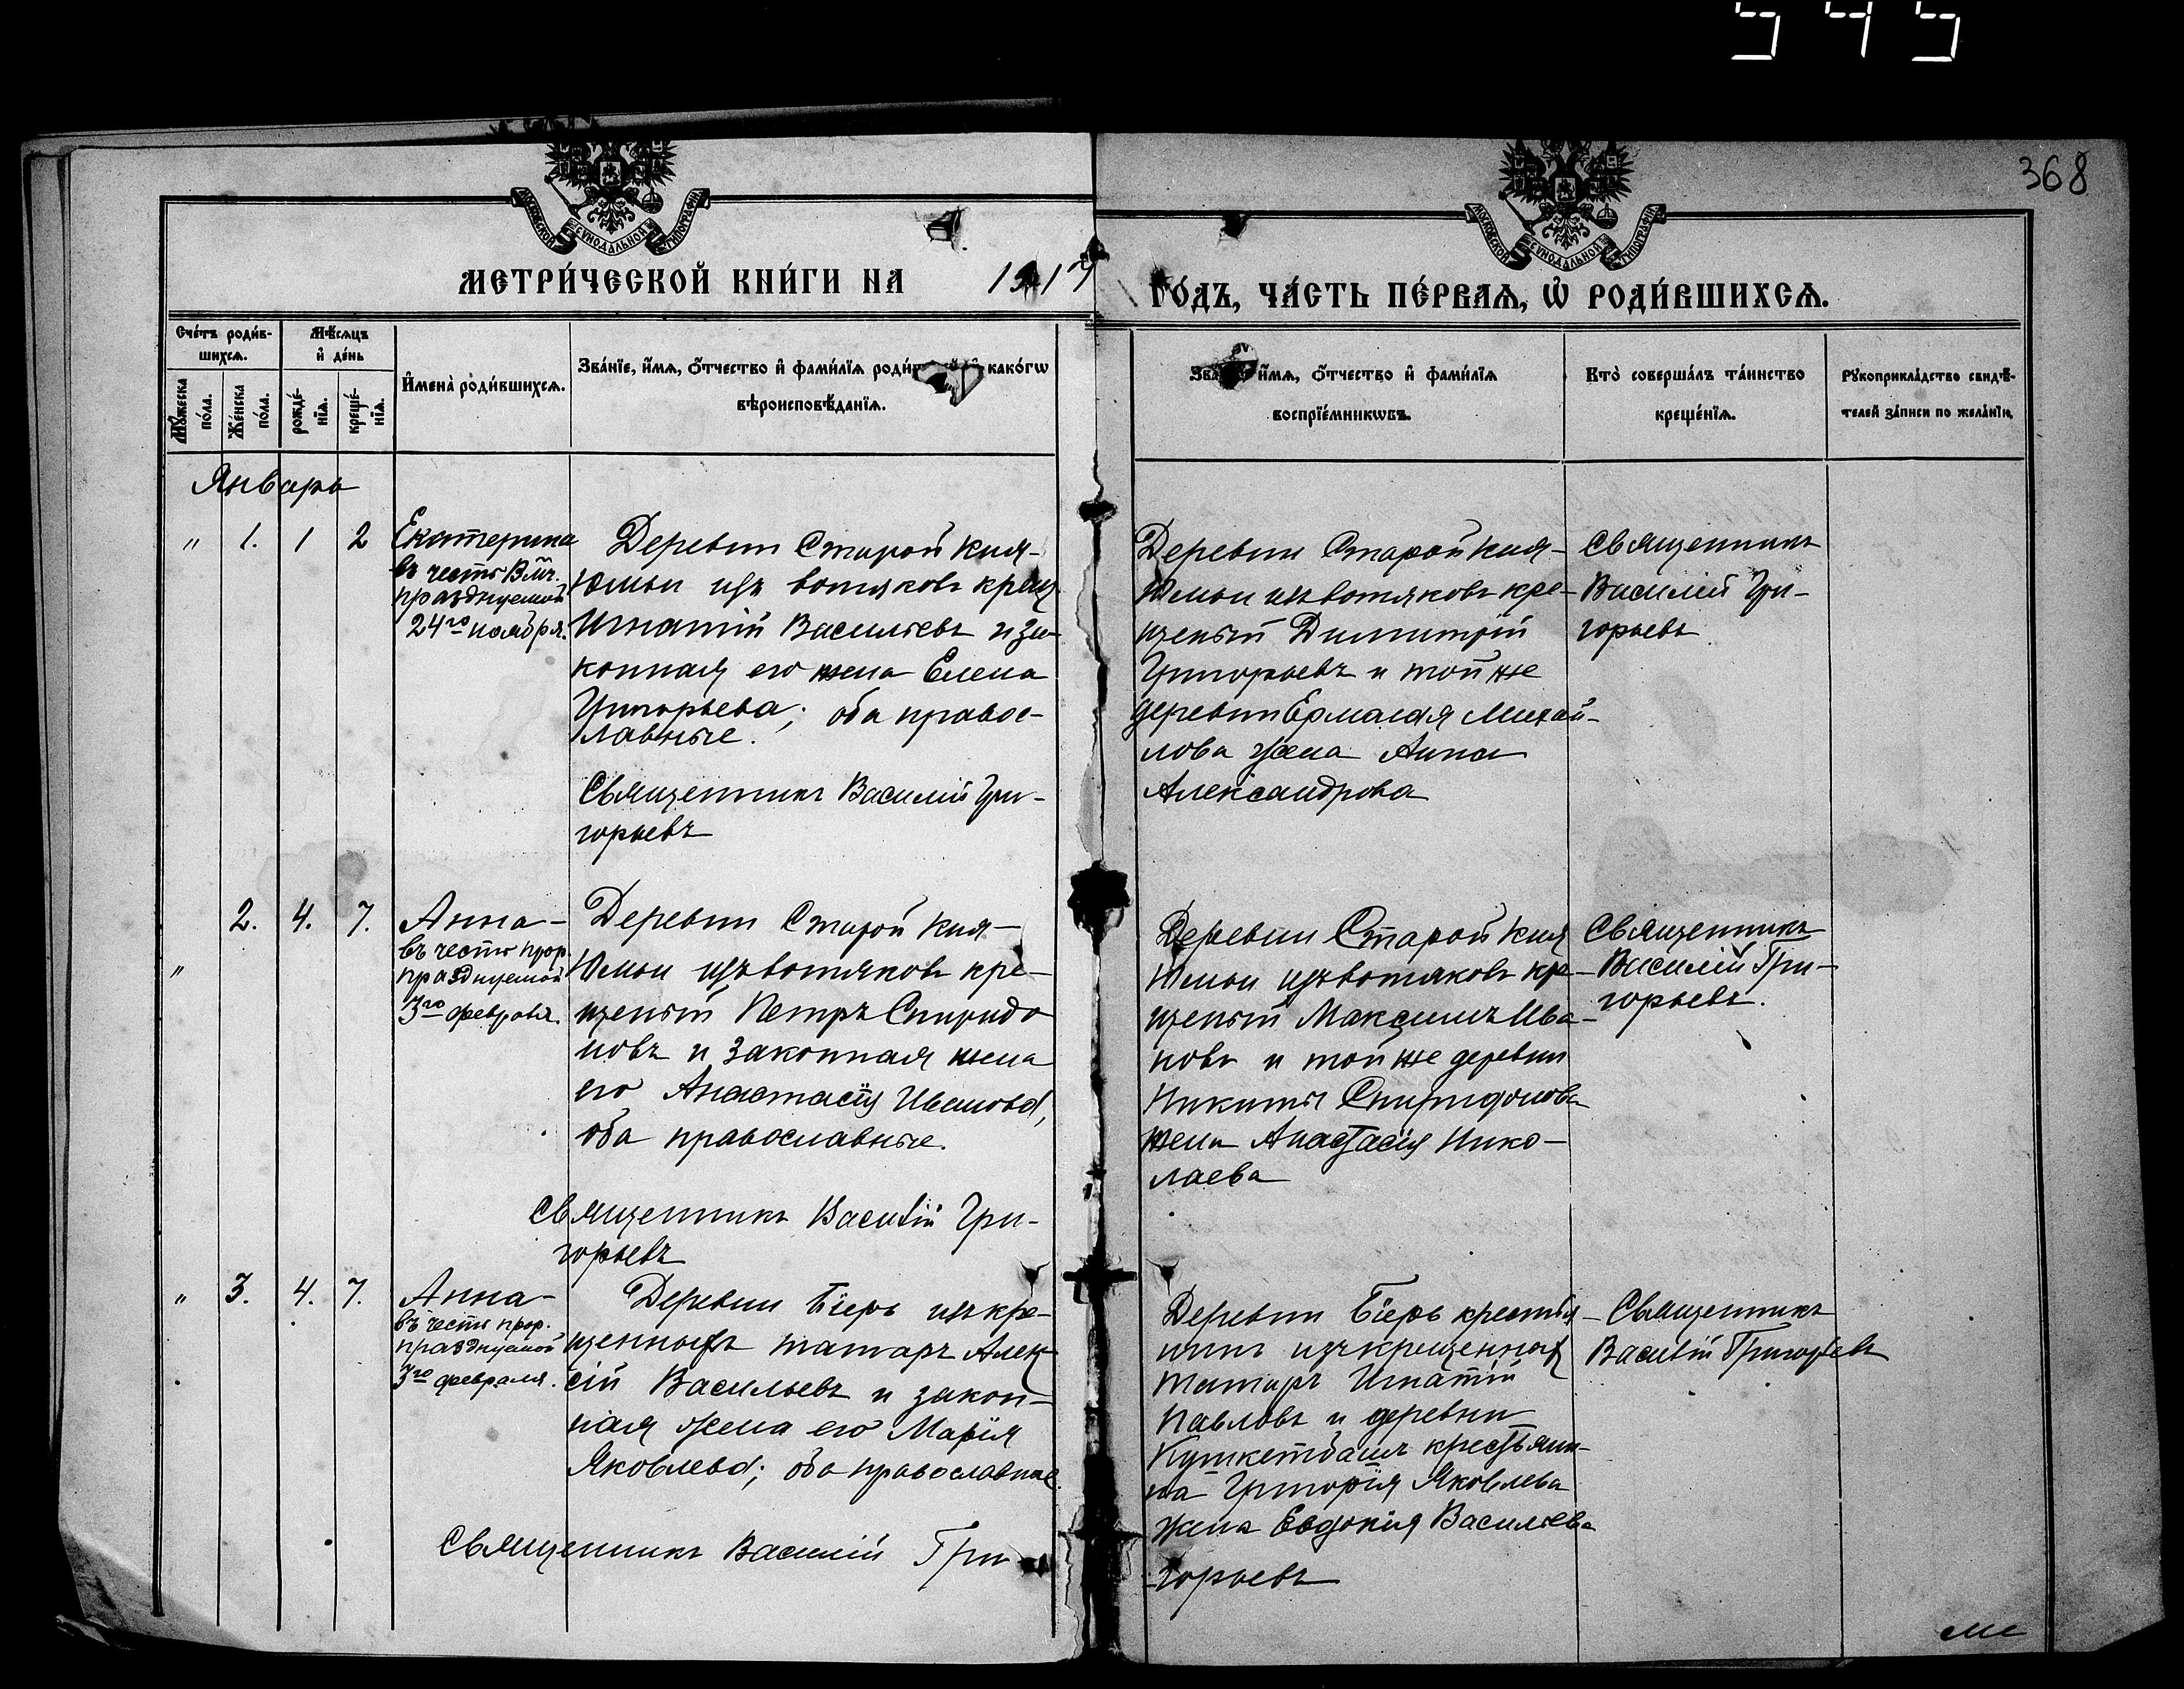 545
368
МОСКОВСКОЙ СѴНОДАЛЬНОЙ ТИПОГРАФІИ
МОСКОВСКОЙ СѴНОДАЛЬНОЙ ТИПОГРАФІИ
МЕТРИ́ЧЕСКОЙ КНИ́ГИ НА 1917
ГО́ДЪ, ЧА́СТЬ ПЕ́РВАЯ, Ѡ҆ РОДИ́ВШИХСЯ.
Сче́тъ роди́в-
шихся.
Мꙋ́жеска
по́ла.
Же́нска
по́ла.
Мѣ́сяцъ
и҆ де́нь
рожде́-
нїя.
креще́-
нїя.
И҆мена̀ роди́вшихся.
Зва́нїе, и҆́мя, ѻ҆́тчество и҆ фами́лїя како́гѡ
вѣроисповѣ́данїя.
и҆́мя, ѻ҆́тчество и҆ фами́лїя
воспрїе́мникѡвъ.
Кто̀ соверша́лъ та́инство
креще́нїя.
Рꙋкоприкла́дство свидѣ́-
телей за́писи по жела́нїю.
Января
" 1. 1 2
Екатерина
въ честь Вмч.
празднуемой
24го ноября.
Деревни Старой Кня-
Юмьи изъ вотяковъ крещ.
Игнатій Васильевъ и за-
конная его жена Елена
Григорьева; оба правос-
лавные.
Священникъ Василій Гри-
горьевъ
Деревни Старой Кня-
Юмьи изъ вотяковъ кре-
щеный Димитрій
Григорьевъ и той же
деревни Ермолая Михай-
лова жена Анна
Александрова
Священникъ
Василій Гри-
горьевъ
" 2. 4. 7.
Анна-
въ честь прор.
празднуемой
3го февраля.
Деревни Старой Кня-
Юмьи изъ вотяковъ кре-
щеный Петръ Спиридо
новъ и законная жена
его Анастасія Иванова,
оба православные.
Священникъ Василій Гри-
горьевъ
Деревни Старой Кня
Юмьи изъ вотяковъ кре-
щеный Максимъ Ива-
новъ и той же деревни
Никиты Спиридонова
жена Анастасія Нико-
лаева
Священникъ
Василій Гри-
горьевъ.
" 3. 4. 7.
Анна-
въ честь прор.
празднуемой
3го февраля.
Деревни изъ кре-
щенныхъ татаръ Алек
сій Васильевъ и закон-
ная жена его Марія
Яковлева; оба православные.
Священникъ Василій Гри
Деревни крестья-
нинъ изъ крещенныхъ
татаръ Игнатій
Павловъ и деревни
крестьяни-
на Григорія Яковлева
жена Евдокія Васильева
горьевъ
Священникъ
Василій Григорьевъ
Ме